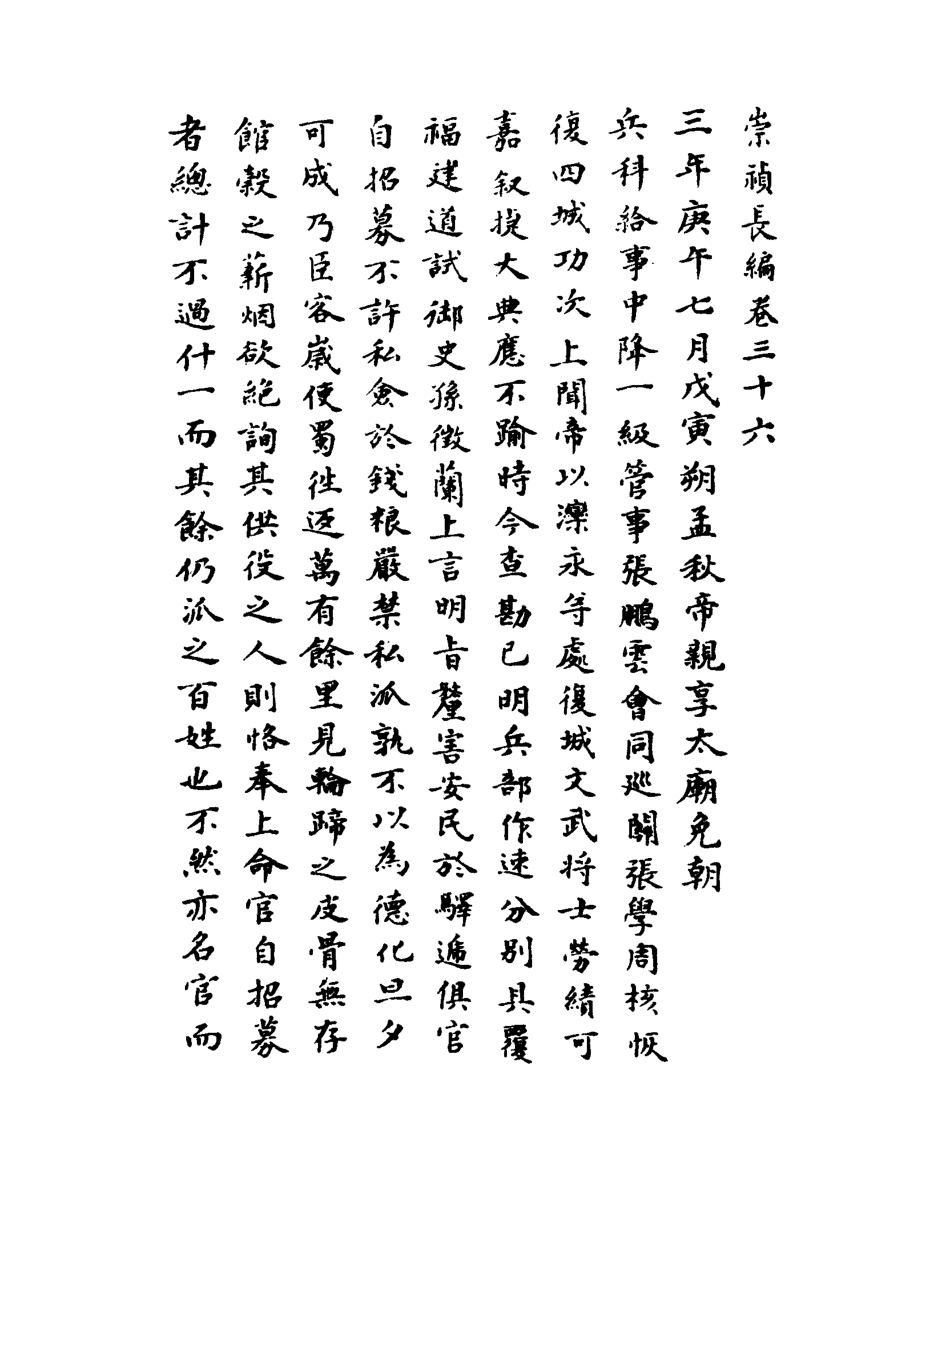 崇禎長編卷三十六
三年庚午七月戊寅朔孟秋帝親享太廟免朝
兵科給事中降一級管事張鵬雲會同巡關張學周核恢
復四城功次上聞帝以灤永等處復城文武将士勞績可
嘉叙捷大典應不踰時今查勘已明兵部作速分别具覆
福建道試御史孫徵蘭上言明旨釐害安民於驛遞俱官
自招募不許私僉於錢粮嚴禁私派孰不以為德化旦夕
可成乃臣客歲使蜀徃返萬有餘里見輪蹄之皮骨無存
館穀之薪烟欲絶詢其供役之人則恪奉上命官自招募
者總計不過什一而其餘仍派之百姓也不然亦名官而